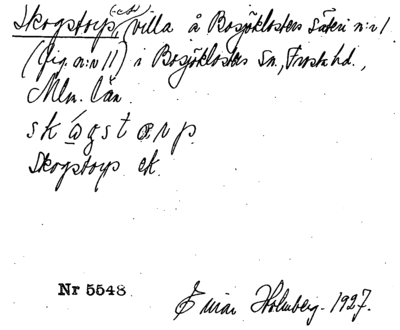 Skogstorp, (ck) villa å Bosjöklosters säteri n:r 1
(fig. n:r 11) i Bosjöklosters Sn., Frosta hd.,
Mlm. län.
skågstarp
Skogstorp ek.
Nr 5548
Einar Holmberg. 1927.